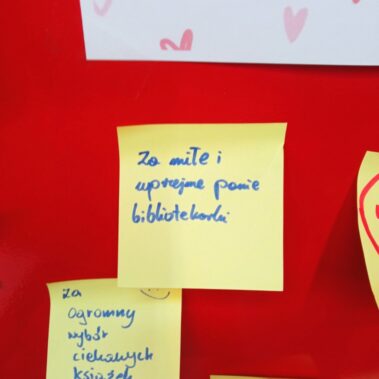 Za miłe i
uprzejme panie
bibliotekarki
za
ogromny
wybór
ciekawych
książek